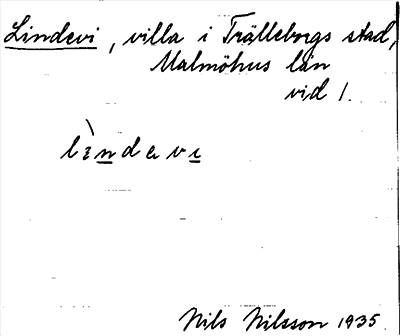 Lindevi, villa i Trälleborgs stad,
Malmöhus län
vid 1.
lìndevi
Nils Nilsson 1935